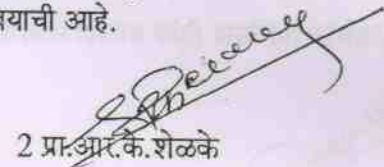 याची आहे.
2 प्रा.आर.के.शेळके